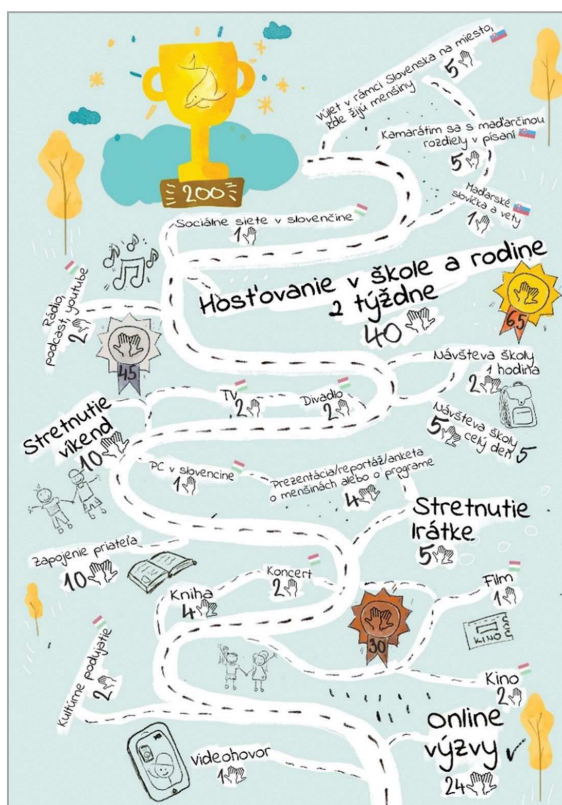 výlet v rámci Slovenska na miesto,
kde žijú menšiny
5
Kamarátim sa s maďarčinou
rozdiely v písaní
5
Maďarské
slovíčka a vety
1
200
Sociálne siete v slovenčine
1
Hosťovanie v škole a rodine
2 týždne
40
65
Rádio,
podcast, youtube
2
45
Návšteva školy
1 hodina
2
TV
2
Divadlo
2
Návšteva školy
5 celý deň 5
Stretnutie
víkend
10
PC v slovencine
1
Prezentácia/reportáž/anketa
o menšinách alebo o programe
4
Stretnutie
krátke
5
Zapojenie priateľa
10
Kniha
4
Koncert
2
Film
1
30
KINO
Kultúrne podujatie
2
Kino
2
Online
výzvy
24
Videohovor
1